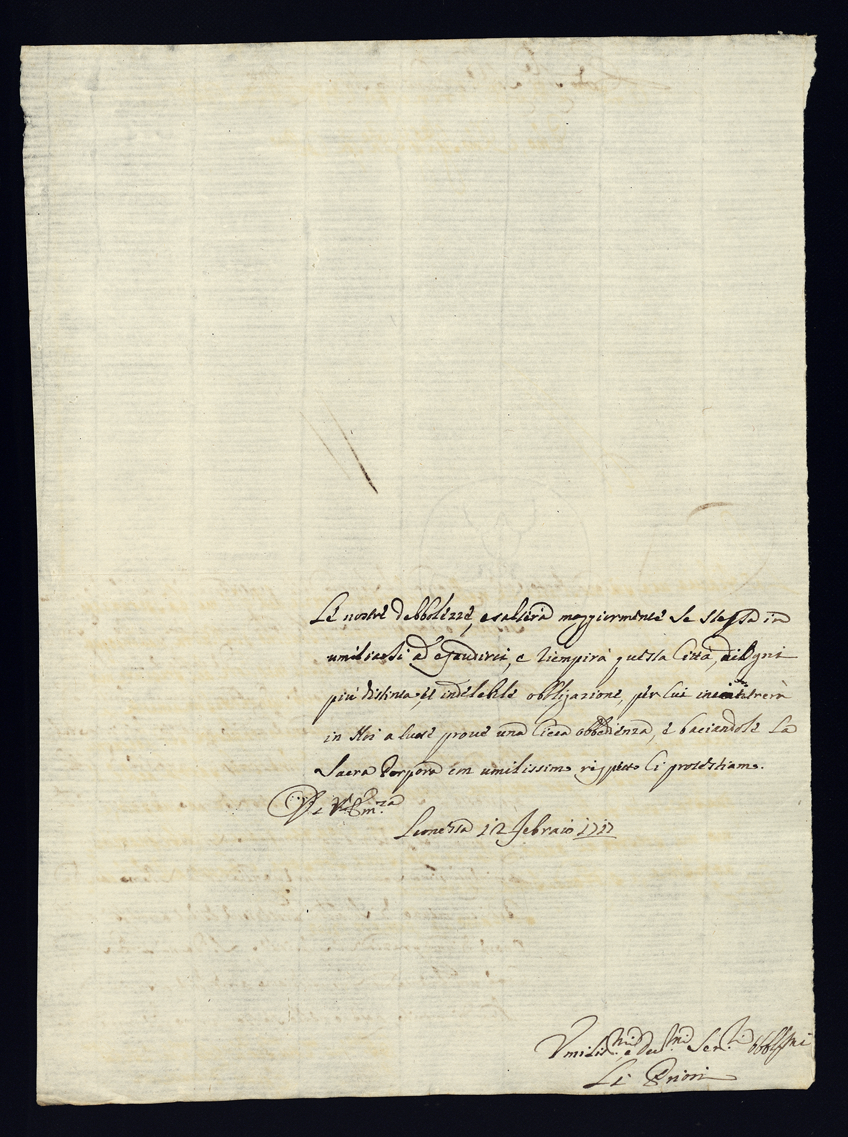 Le nostre debbolezze, esalterà maggiormente se stessa in
umiliarsi ad esaudirci, e riempirà questa Città, di Ogni
più distinta, et indelebile obbligazione, per cui incontrerà
in Noi a tutte prove una cieca obbedienza, e baciandole La
Sacra Porpora con umilissimo rispetto Ci protestiamo.
Di V.ra Em.za
Leonessa 12 Febraio 1717
Umiliss.mi, e Dev.mi Ser.ri Obblig.mi
Li Priori